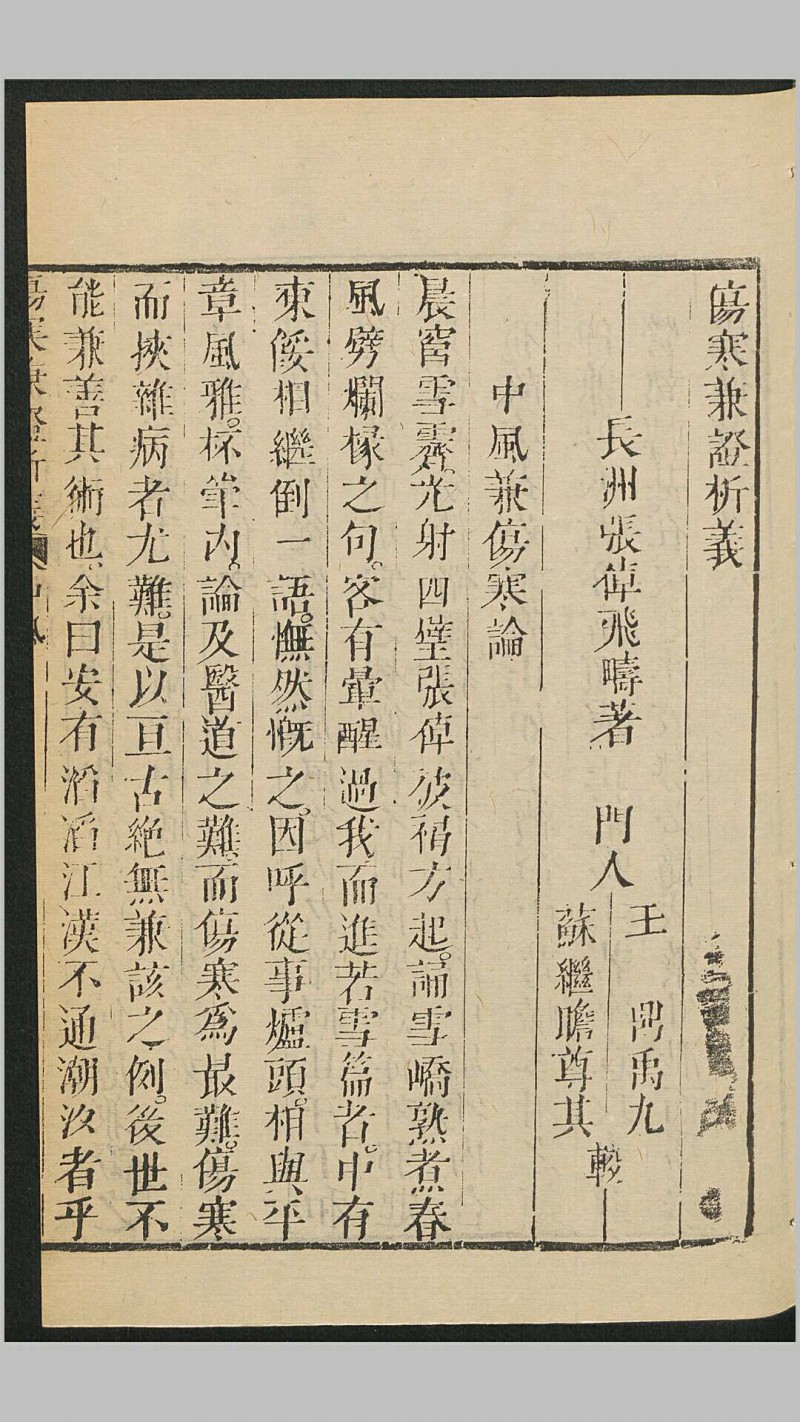 傷寒兼證析義
長洲張倬飛疇著 門人
王 鼎禹九
蘇繼瞻尊其
較
中風兼傷寒論
晨窗雪霽。光射四壁張倬披裯方起。誦雪嶠熟煮春
風劈爛椽之句。客有暈醒過我而進若雪篇者。中有
東倭相繼倒一語。憮然慨之。因呼從事爐頭。相與平
章風雅。杯筆內。論及醫道之難。而傷寒爲最難。傷寒
而挾雜病者尤難。是以亘古絶無兼該之例。後世不
能兼善其術也。余曰安有滔滔江漢不通潮汐者乎
傷寒兼證析義 中風